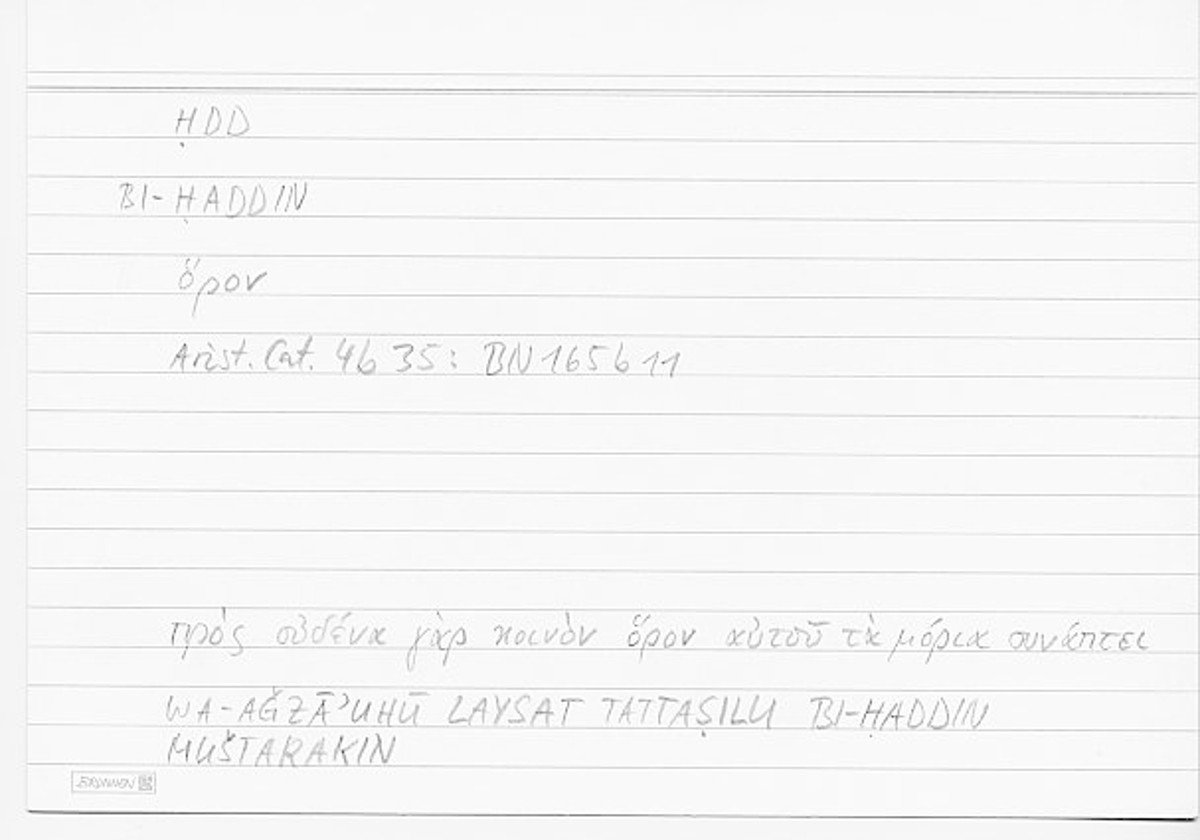 ḤDD
BI-ḤADDIN
ὅρον
Arist. Cat. 4b 35: BN 165b 11
πρὸς οὐδένα γὰρ κοινὸν ὅρον αὐτοῦ τὰ μόρια συνάπτει
WA-AǦZĀʾUHŪ LAYSAT TATTAṢILU BI-ḤADDIN
MUŠTARAKIN
BRUNNEN